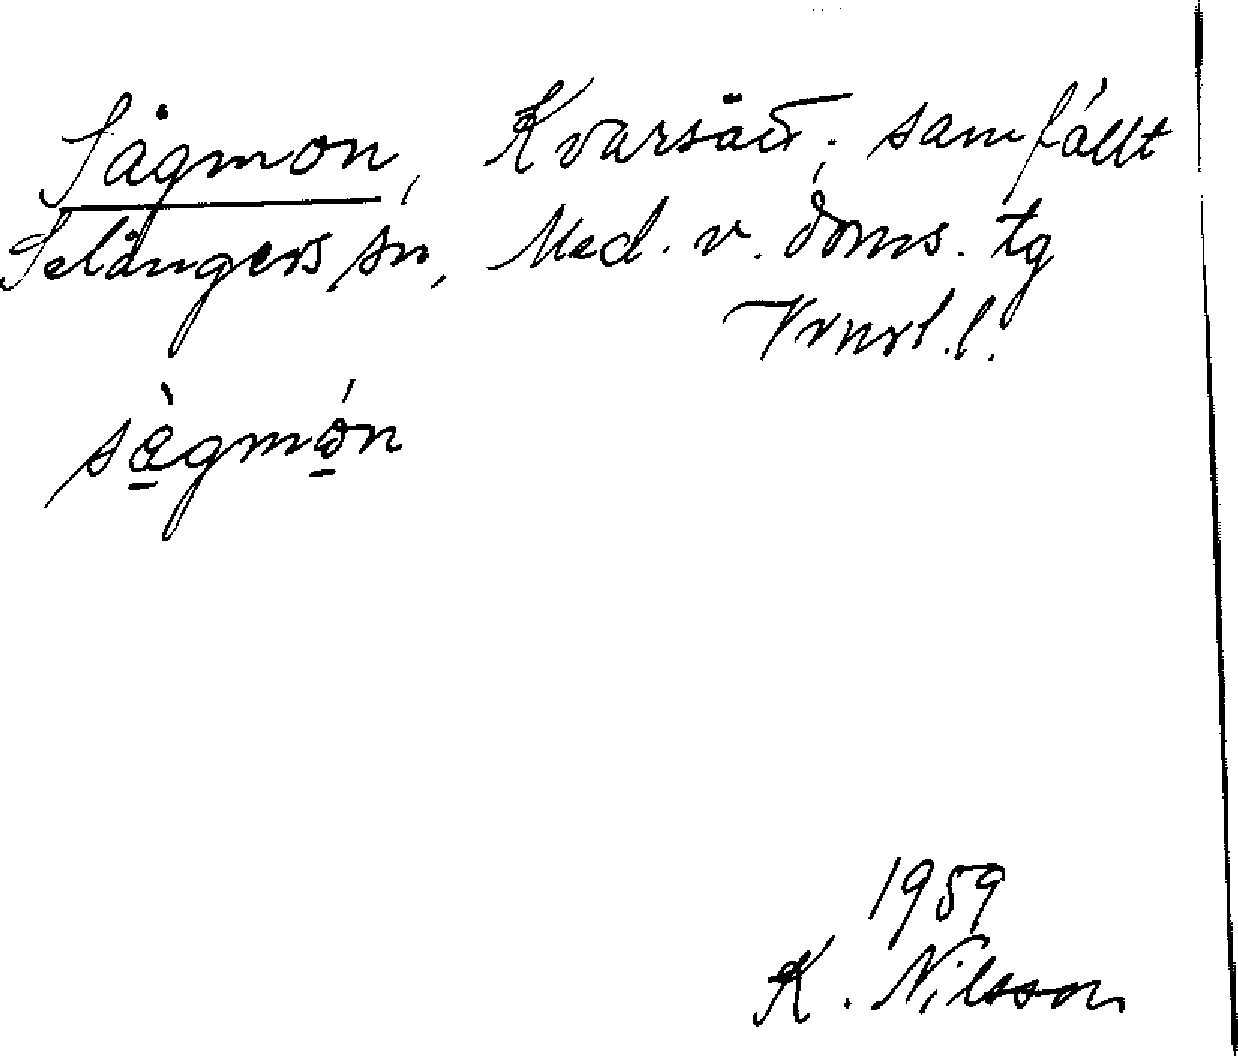 Sågmon, Kvarsätt; samfällt
Selångers sn, Med. v. doms. tg
Vrnrl. l.
sågmón
1959
K. Nilsson